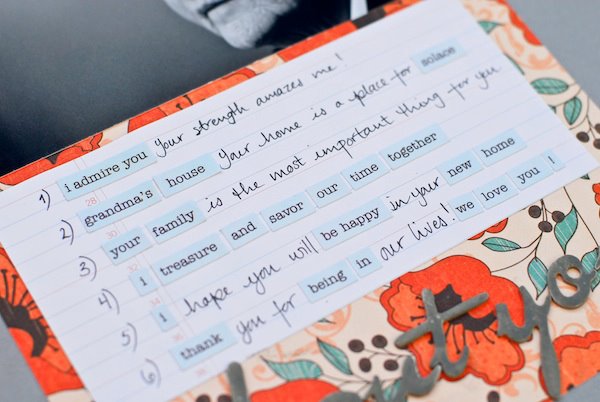 1) i admire you your strength amazes me!
2) grandma's house your home is a place for solace
3) your family is the most important thing for you
4) i treasure and savor our time together
5) i hope you will be happy in your new home
6) thank you for being in our lives! we love you!